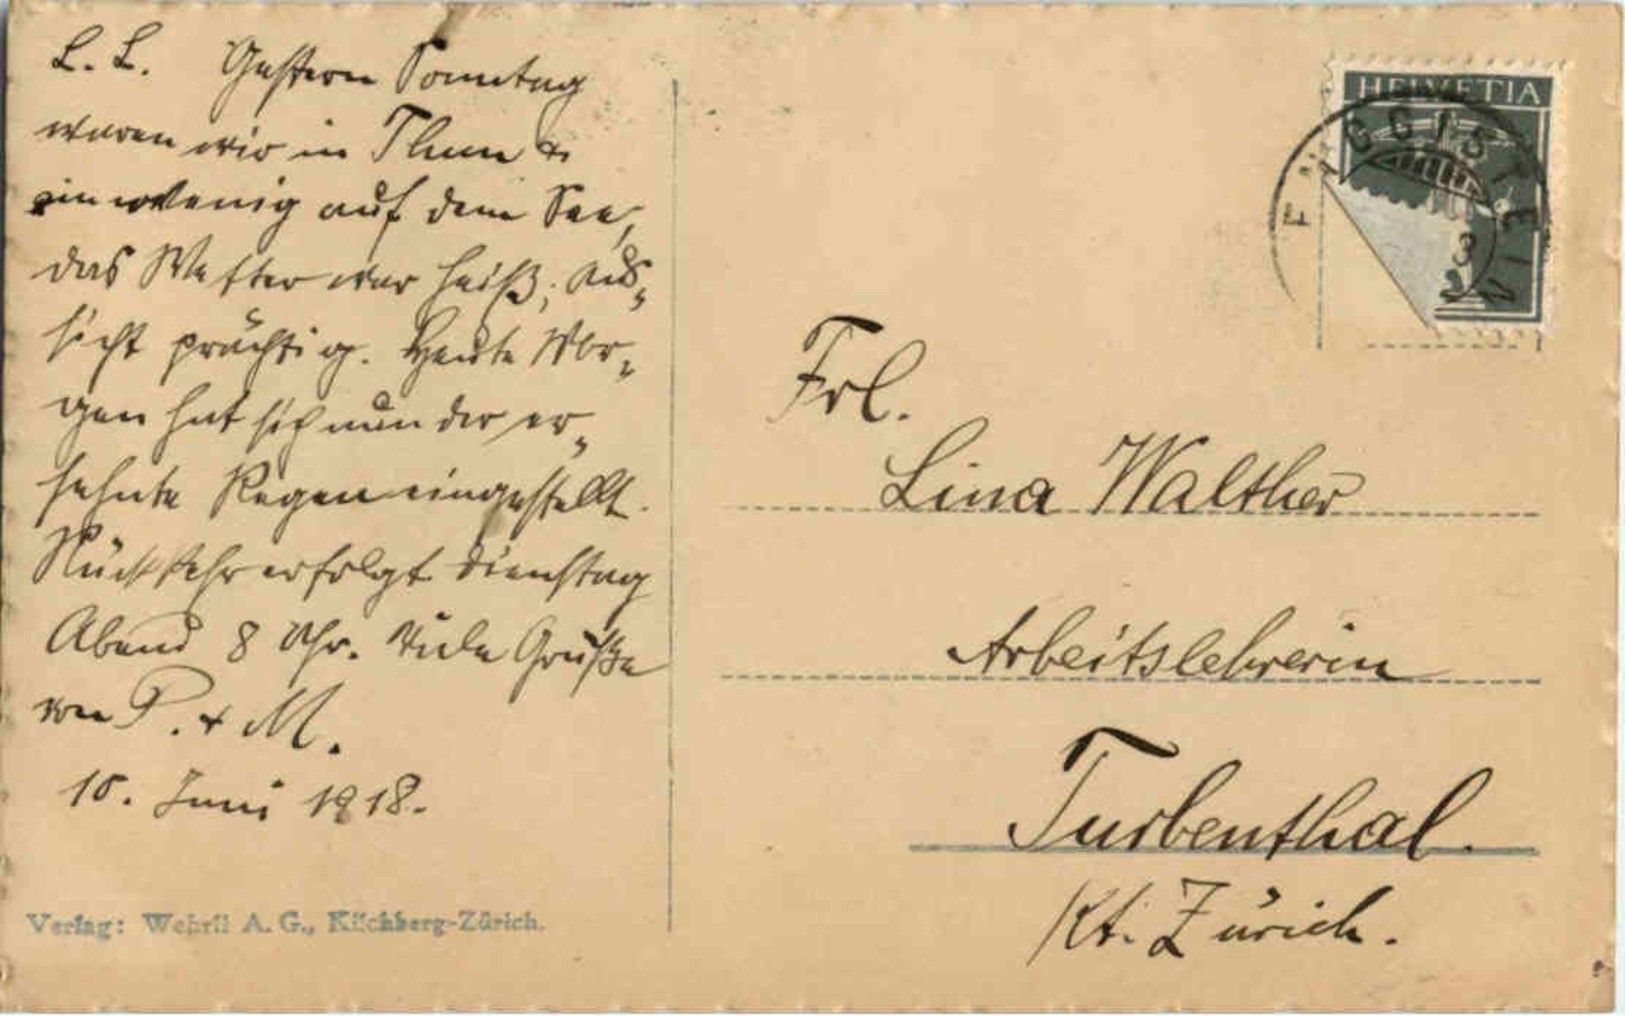 L. L. Gestern Sonntag
waren wir in Thun &
ein wenig auf dem See,
das Wetter war heiß, Aus-
sicht prächtig. Heute Mor-
gen hat sich nun der er-
sehnte Regen eingestellt.
Rückkehr erfolgt Dienstag
Abend 8 Uhr. Viele Grüße
von P. + M.
10. Juni 1918.
Verlag: Wehrli A. G., Kilchberg-Zürich.
HELVETIA
FAGGISTEIN
3
Frl.
Lina Walther
Arbeitslehrerin
Turbenthal.
Kt. Zürich.